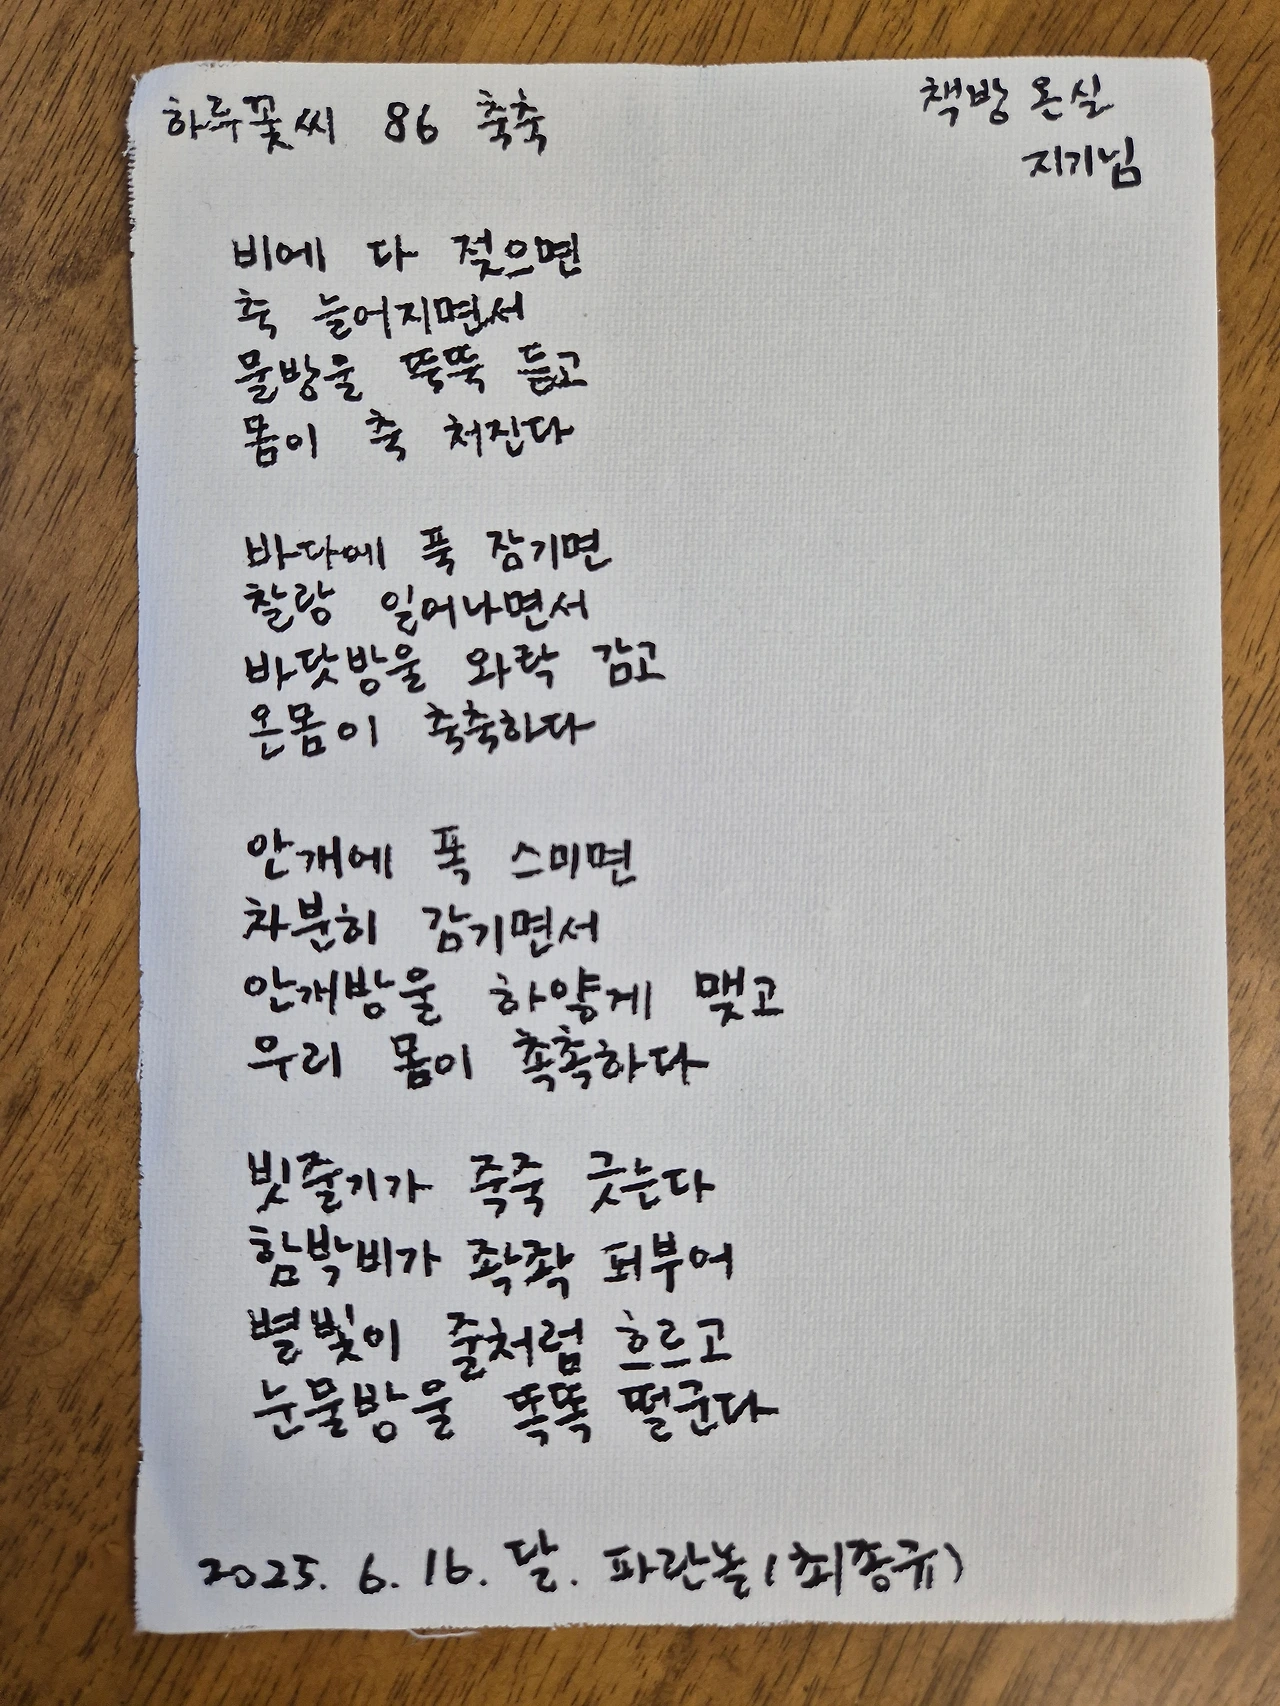 하루꽃씨 86 축축
책방 온실
지기님
비에 다 젖으면
축 늘어지면서
물방울 뚝뚝 듣고
몸이 축 처진다
바다에 푹 잠기면
찰랑 일어나면서
바닷방울 와락 감고
온몸이 축축하다
안개에 폭 스미면
차분히 감기면서
안개방울 하얗게 맺고
우리 몸이 촉촉하다
빗줄기가 죽죽 긋는다
함박비가 좍좍 퍼부어
별빛이 줄처럼 흐르고
눈물방울 똑똑 떨군다
2025. 6. 16. 달. 파란놀(최종규)